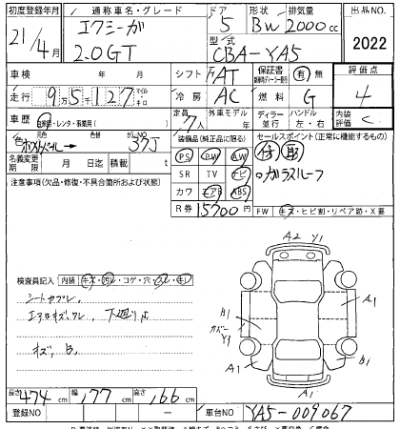 初度登録年月 通称車名・グレード ドア 形状 排気量 出品NO.
21/4月 エクシーガ 2.0GT 5 BW 2000cc 2022
型式 CBA-YA5
車検 年 月 シフト FAT 保証書 有 無 評価点
走行 9万5千127 冷房 AC 燃料 G 4
車歴 自家用・レンタ・事業用( ) 定員 7人 外車モデル年 ディーラー 並行 ハンドル 左・右 内装評価 C
色 元色 色替 37J 装備品(純正品に限る) セールスポイント(正常に機能するもの)
名義変更期限 月 日迄 積載 t PS PW AW
SR TV ナビ ガラスルーフ
注意事項(欠品・修復・不具合箇所および状態) カワ エアB ABS
R券 15700円 FW キズ・ヒビ割・リペア跡・X要
A2 Y1
検査員記入 内装 キズ・汚レ・コゲ・穴・スレ・キレ
シートカブレ、
エアロキズ、ワレ、下廻りサ
キズ、B、
A1 B1 Y1 A1 A1 B1
長さ 474cm 幅 177cm 高さ 166cm
登録NO ー 車台NO YA5-009067